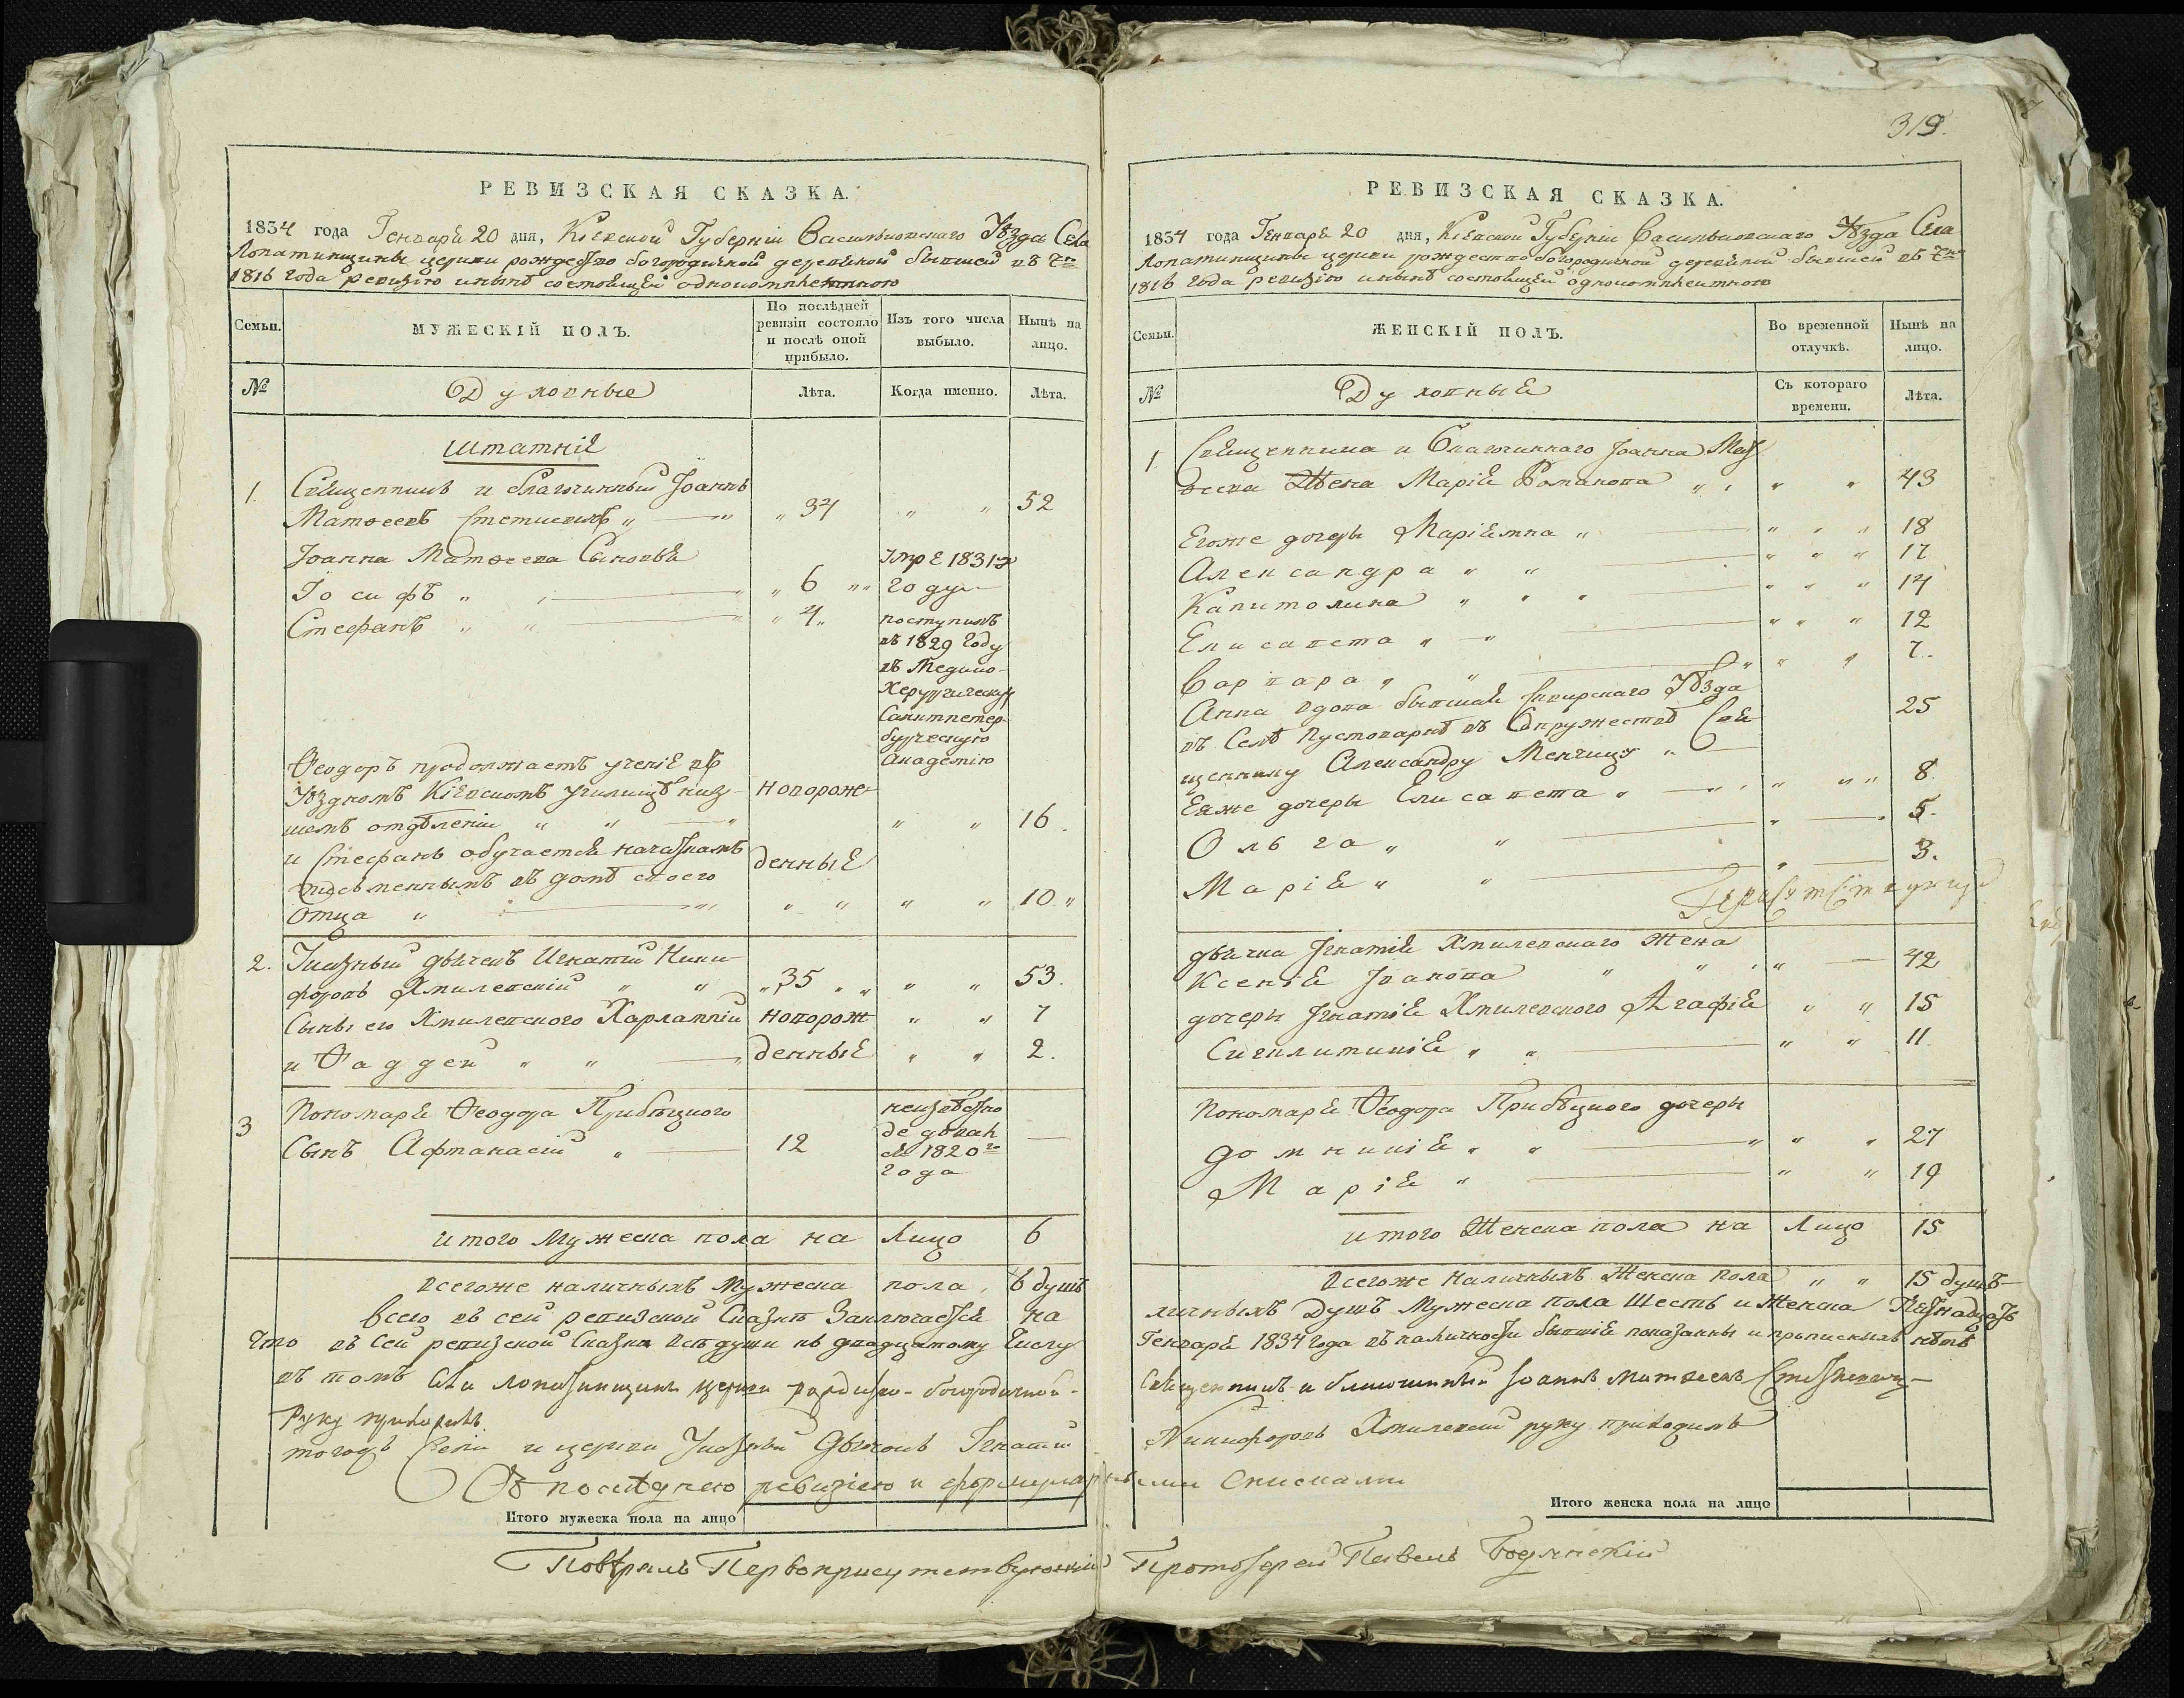 319.
РЕВИЗСКАЯ СКАЗКА.
1834 года Генваря 20 дня, Кіевской Губерніи Васильковскаго Уѣзда Села
Лопатинщины церкви рождество богородичной деревяной бывшей въ
1816 года ревизію и нынѣ состоящей однокомплектною
Семьи.
МУЖЕСКІЙ ПОЛЪ.
По послѣдней ревизіи состояло и послѣ оной прибыло.
Изъ того числа выбыло.
Нынѣ на лицо.
№
Духовные
Лѣта.
Когда именно.
Лѣта.
Штатніе
1. Священникъ и благочинный Іоаннъ
Матѳеевъ 34 52
Іоанна Матѳеева Сыновья
Іосифъ 6 умре 1831го году
Стефанъ 4 поступилъ
въ 1829 году
въ Медико-
Херургическую
Санктпетер-
бургскую
Академію
Ѳеодоръ продолжаетъ ученіе въ
Уѣздномъ Кіевскомъ училищѣ низ- новорож-
шемъ отдѣленіи 16.
и Стефанъ обучается началамъ денные
письменнымъ въ домѣ своего
Отца 10
2. Указный дьячекъ Игнатій Ники-
форовъ Хмилевскій 35 53.
Сыны его Хмилевского Харлампій новорож- 7
и Фаддей денные 2.
3 Пономаря Ѳеодора Прибѣцкого неизвѣстно
Сынъ Афтанасій 12 где дѣвался 1820го года —
итого Мужеска пола на Лицо 6
Всегоже наличныхъ Мужеска пола, 6 душъ
Всего въ сей ревизской Сказкѣ Заключается на
Что въ сей ревизской Сказки всѣ души къ двадцатому Числу
въ томъ
Руку приложилъ
тогожъ Села и церкви Указный Дьячокъ Игнатій
Съ послѣднею ревизіею и формулярными списками
Итого мужеска пола на лицо
Повѣрялъ Первоприсутствующій Протоіерей Павелъ Бодянскій
РЕВИЗСКАЯ СКАЗКА.
1834 года Генваря 20 дня, Кіевской Губерніи Васильковскаго Уѣзда Села
Лопатинщины церкви рождество богородичной деревяной бывшей въ
1816 года ревизію и нынѣ состоящей однокомплектною
Семьи.
ЖЕНСКІЙ ПОЛЪ.
Во временной отлучкѣ.
Нынѣ на лицо.
№
Духовные
Съ котораго времени.
Лѣта.
1. Священника и благочиннаго Іоанна Мат-
ѳеева Жена Марія Романова 43
Егоже дочеры Маріямна 18
Александра 17
Капитолина 14
Елисавета 12
Варвара 7.
Анна вдова бывшая Сквирскаго Уѣзда
въ Селѣ Пустоварнѣ въ Супружествѣ Свя- 25
щеннику Александру
Еяже дочеры Елисавета 8
Ольга 5.
Марія 3.
дьячка Игнатія Хмилевскаго Жена
Ксенія Іванова 42
дочеры Игнатія Хмилевского Агафія 15
Сигклитикія 11
Пономаря Ѳеодора Прибѣцкого дочеры
Домникія 27
Марія 19
итого Женска пола на Лицо 15
Всегоже Наличныхъ Женска Пола 15 душъ
личныхъ Душъ Мужеска пола Шесть и Женска Пятнадцать
Генваря 1834 года въ наличности бывшіе показанны и прописныхъ нѣтъ
Священникъ и благочинный Іоаннъ Матѳеевъ
Никифоровъ Хмилевскій руку приложилъ
Итого женска пола на лицо